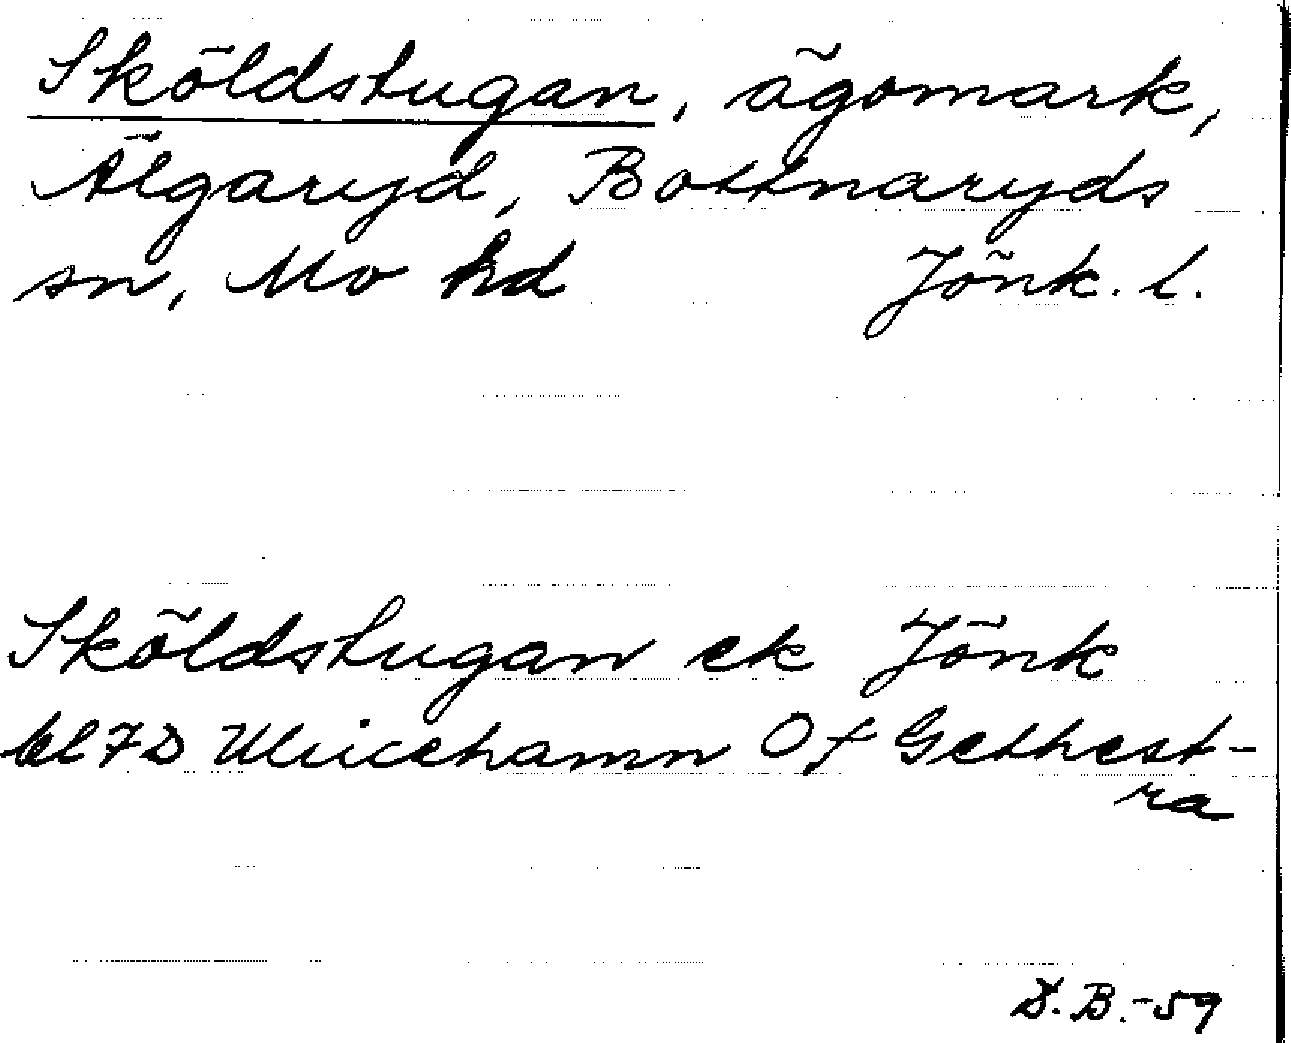 Sköldstugan, ägomark,
Älgaryd, Bottnaryds
sn, Mo hd Jönk. l.
Sköldstugan ek Jönk
bl 7D Ulricehamn Of Gethest-
ra
D.B.-59